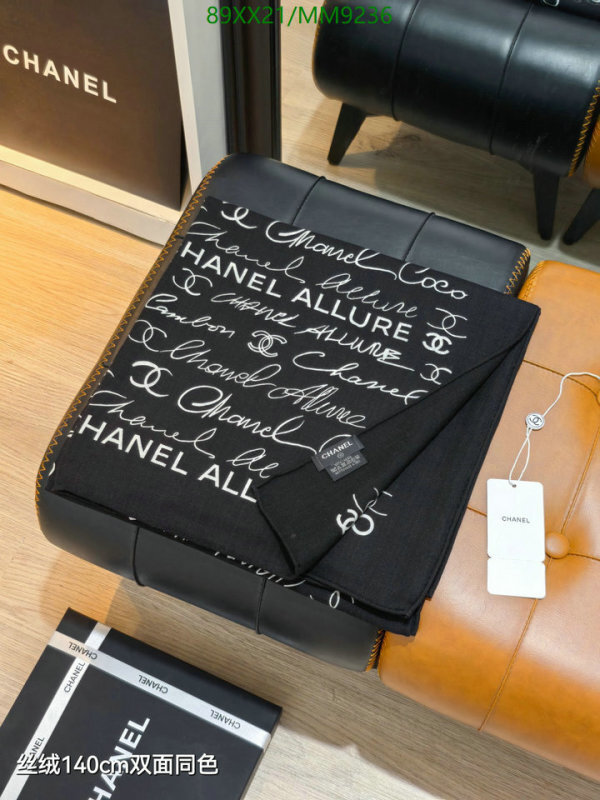 89XX21/MM9236
CHANEL
Chanel Coco
Chanel Allure
HANEL ALLURE
CHANEL ALLURE
Cambon
Chanel
Chanel Allure
Chanel
Allure
Chanel
HANEL ALL
CHANEL
CHANEL
CHANEL
CHANEL
CHANEL
CHANEL
CHANEL
丝绒140cm双面同色